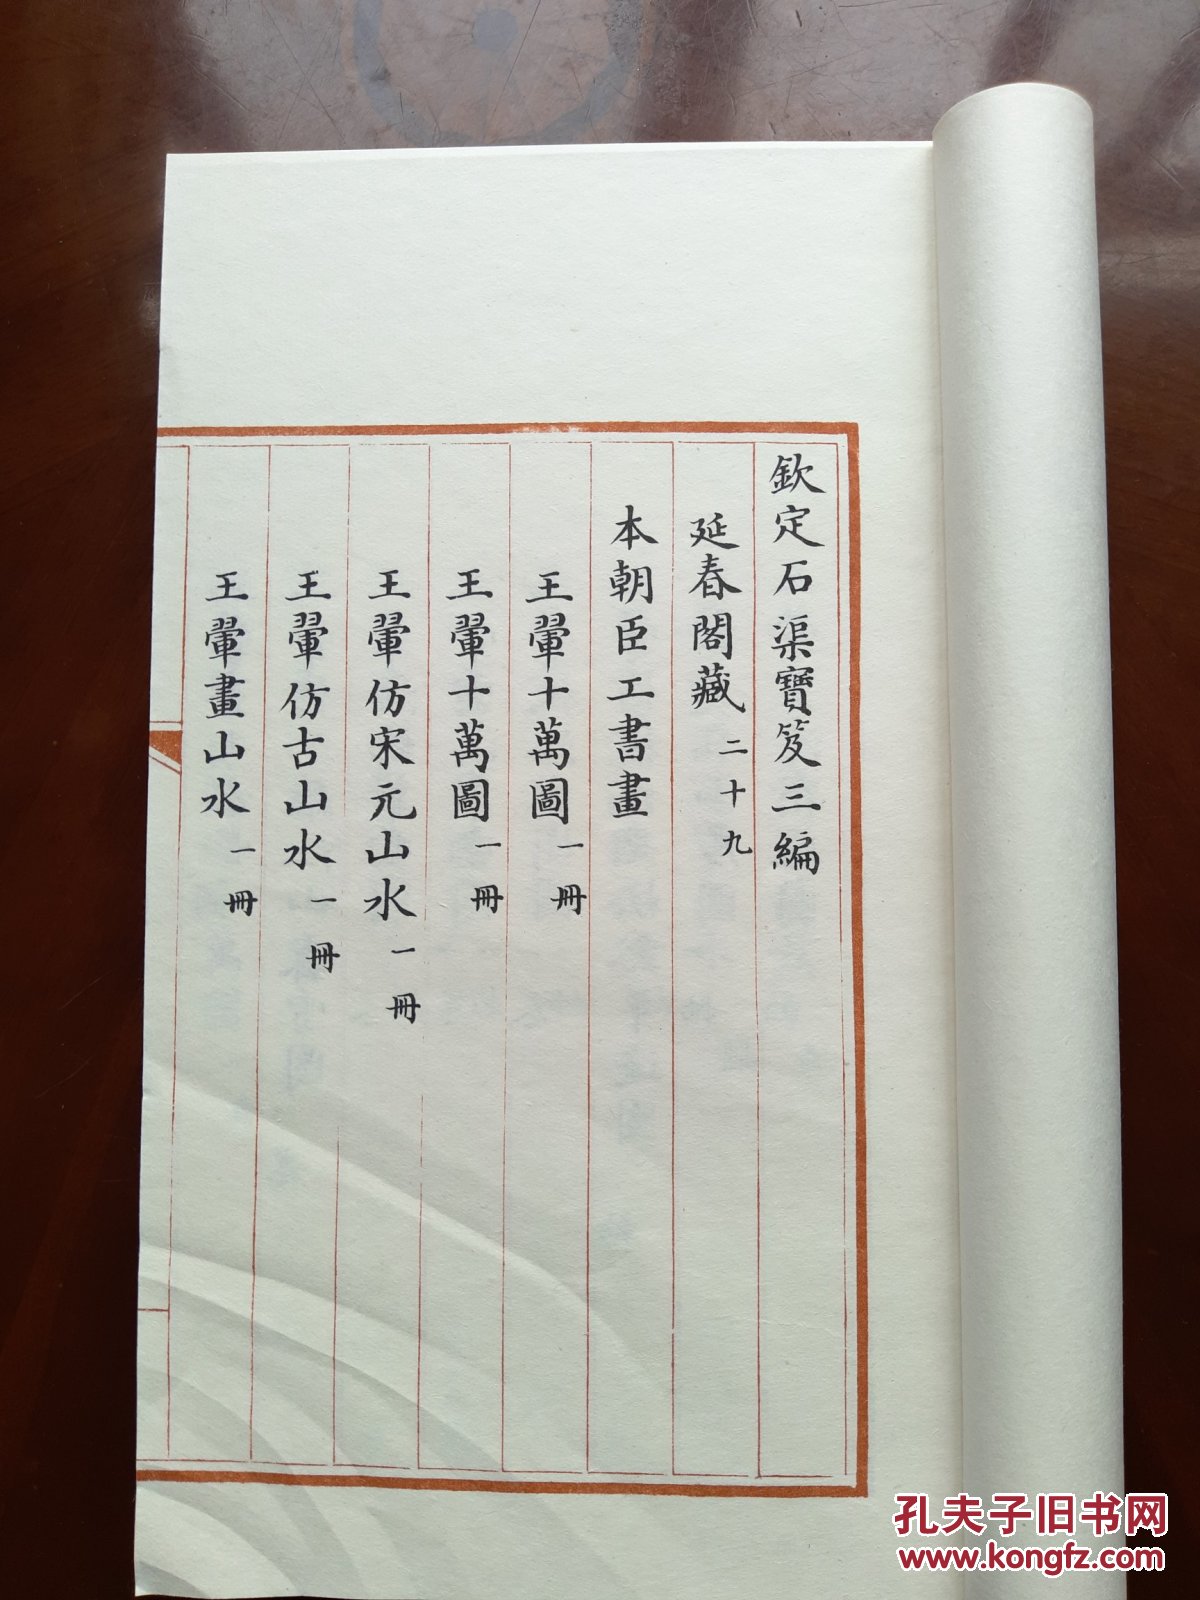 欽定石渠寶笈三編
延春閣藏二十九
本朝臣工書畫
王翬十萬圖一冊
王翬十萬圖一冊
王翬仿宋元山水一冊
王翬仿古山水一冊
王翬畫山水一冊
孔夫子旧书网
www.kongfz.com